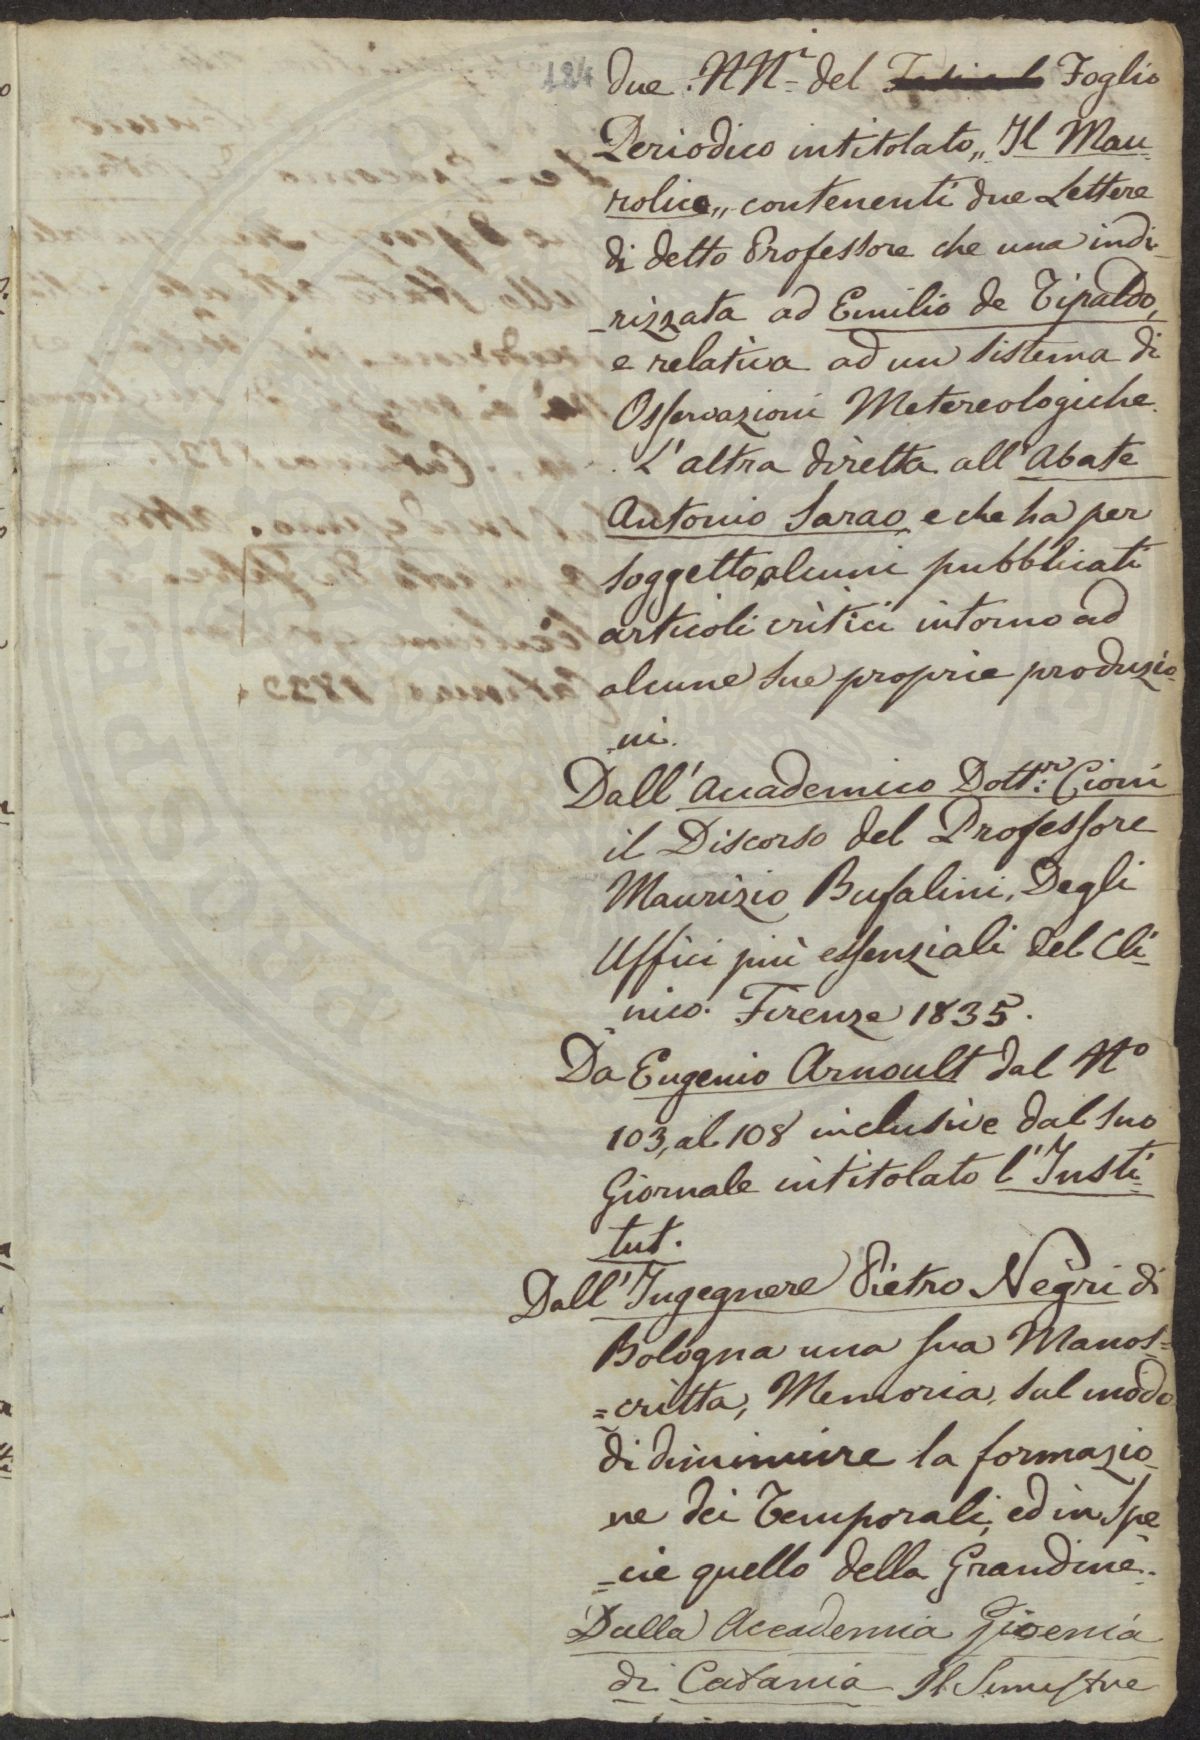 184
due NN.ri del Foglio
Periodico intitolato „Il Mau
rolico„ contenenti due Lettere
di detto Professore che una indi-
-rizzata ad Emilio de Tipaldo,
e relativa ad un sistema di
Osservazioni Metereologiche.
L'altra diretta all'Abate
Antonio Sarao, e che ha per
soggetto alcuni pubblicati
articoli critici intorno ad
alcune sue proprie produzio
ni.
Dall'Accademico Dott.r Cioni
il Discorso del Professore
Maurizio Bufalini, Degli
Uffici più essenziali del Cli-
nico. Firenze 1835.
Da Eugenio Arnoult dal N.o
103, al 108 inclusive dal suo
Giornale intitolato l'Insti-
tut.
Dall'Ingegnere Pietro Negri di
Bologna una sua Manos=
=critta, Memoria, sul modo
di diminuire la formazio
ne dei Temporali, ed in spe
-cie quello della Grandine.
Dalla Accademia Gioenia
di Catania Il Semestre